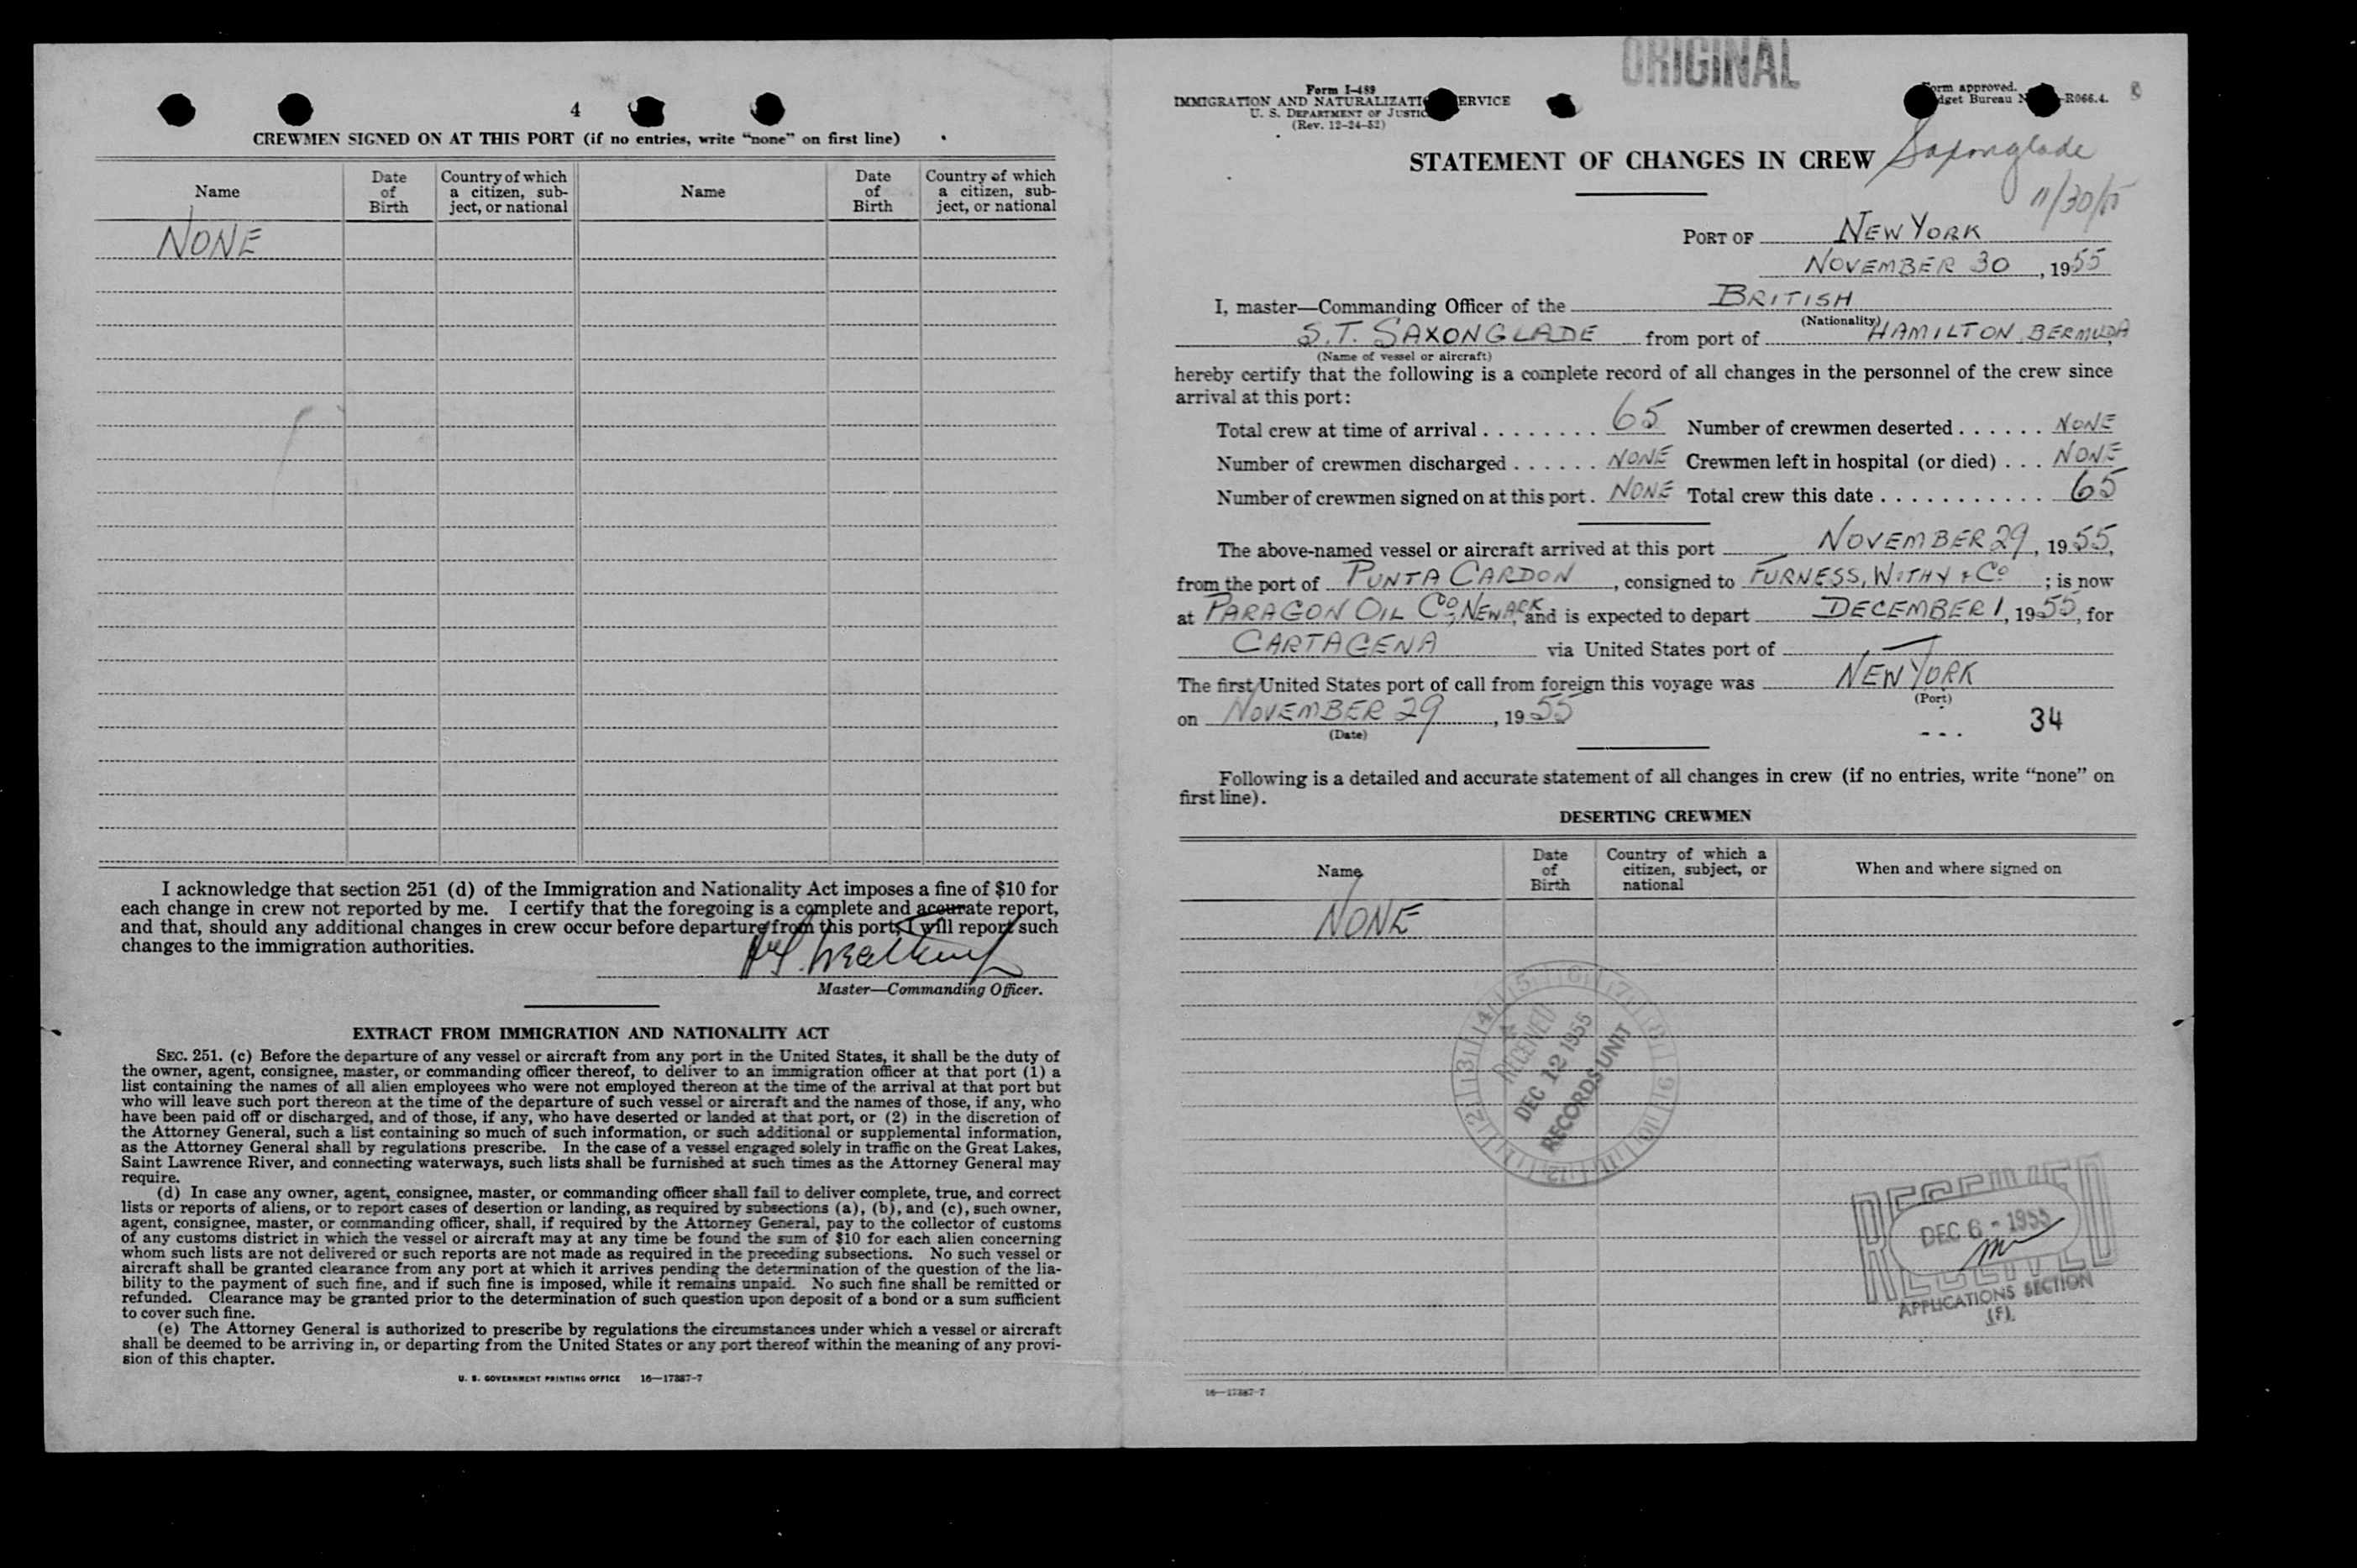 4
CREWMEN SIGNED ON AT THIS PORT (if no entries, write “none” on first line)
Name
Date of Birth
Country of which a citizen, sub-ject, or national
Name
Date of Birth
Country of which a citizen, sub-ject, or national
NONE
I acknowledge that section 251 (d) of the Immigration and Nationality Act imposes a fine of $10 for
each change in crew not reported by me. I certify that the foregoing is a complete and accurate report,
and that, should any additional changes in crew occur before departure from this port, I will report such
changes to the immigration authorities.
Master—Commanding Officer.
EXTRACT FROM IMMIGRATION AND NATIONALITY ACT
SEC. 251. (c) Before the departure of any vessel or aircraft from any port in the United States, it shall be the duty of
the owner, agent, consignee, master, or commanding officer thereof, to deliver to an immigration officer at that port (1) a
list containing the names of all alien employees who were not employed thereon at the time of the arrival at that port but
who will leave such port thereon at the time of the departure of such vessel or aircraft and the names of those, if any, who
have been paid off or discharged, and of those, if any, who have deserted or landed at that port, or (2) in the discretion of
the Attorney General, such a list containing so much of such information, or such additional or supplemental information,
as the Attorney General shall by regulations prescribe. In the case of a vessel engaged solely in traffic on the Great Lakes,
Saint Lawrence River, and connecting waterways, such lists shall be furnished at such times as the Attorney General may
require.
(d) In case any owner, agent, consignee, master, or commanding officer shall fail to deliver complete, true, and correct
lists or reports of aliens, or to report cases of desertion or landing, as required by subsections (a), (b), and (c), such owner,
agent, consignee, master, or commanding officer, shall, if required by the Attorney General, pay to the collector of customs
of any customs district in which the vessel or aircraft may at any time be found the sum of $10 for each alien concerning
whom such lists are not delivered or such reports are not made as required in the preceding subsections. No such vessel or
aircraft shall be granted clearance from any port at which it arrives pending the determination of the question of the lia-
bility to the payment of such fine, and if such fine is imposed, while it remains unpaid. No such fine shall be remitted or
refunded. Clearance may be granted prior to the determination of such question upon deposit of a bond or a sum sufficient
to cover such fine.
(e) The Attorney General is authorized to prescribe by regulations the circumstances under which a vessel or aircraft
shall be deemed to be arriving in, or departing from the United States or any port thereof within the meaning of any provi-
sion of this chapter.
U. S. GOVERNMENT PRINTING OFFICE 16—17387-7
ORIGINAL
Form I-489
IMMIGRATION AND NATURALIZATI ERVICE
U. S. DEPARTMENT OF JUSTIC
(Rev. 12-24-52)
orm approved.
dget Bureau N -R066.4.
STATEMENT OF CHANGES IN CREW Saxonglade
11/30/55
PORT OF NEW YORK
NOVEMBER 30, 1955
I, master—Commanding Officer of the BRITISH
(Nationality)
S.T. SAXONGLADE from port of HAMILTON, BERMUDA
(Name of vessel or aircraft)
hereby certify that the following is a complete record of all changes in the personnel of the crew since
arrival at this port:
Total crew at time of arrival . . . . . . . . 65 Number of crewmen deserted . . . . . . NONE
Number of crewmen discharged . . . . . . NONE Crewmen left in hospital (or died) . . . NONE
Number of crewmen signed on at this port . NONE Total crew this date . . . . . . . . . . . 65
The above-named vessel or aircraft arrived at this port NOVEMBER 29, 1955,
from the port of PUNTA CARDON, consigned to FURNESS, WITHY & Co; is now
at PARAGON OIL Co, NEWARK, and is expected to depart DECEMBER 1, 1955, for
CARTAGENA via United States port of —
The first United States port of call from foreign this voyage was NEW YORK
(Port)
on NOVEMBER 29, 1955
(Date)
34
Following is a detailed and accurate statement of all changes in crew (if no entries, write “none” on
first line).
DESERTING CREWMEN
Name
Date of Birth
Country of which a citizen, subject, or national
When and where signed on
NONE
RECEIVED
DEC 12 1955
RECORDS UNIT
RECEIVED
DEC 6 - 1955
RECEIVED
APPLICATIONS SECTION
(F)
16—17387-7